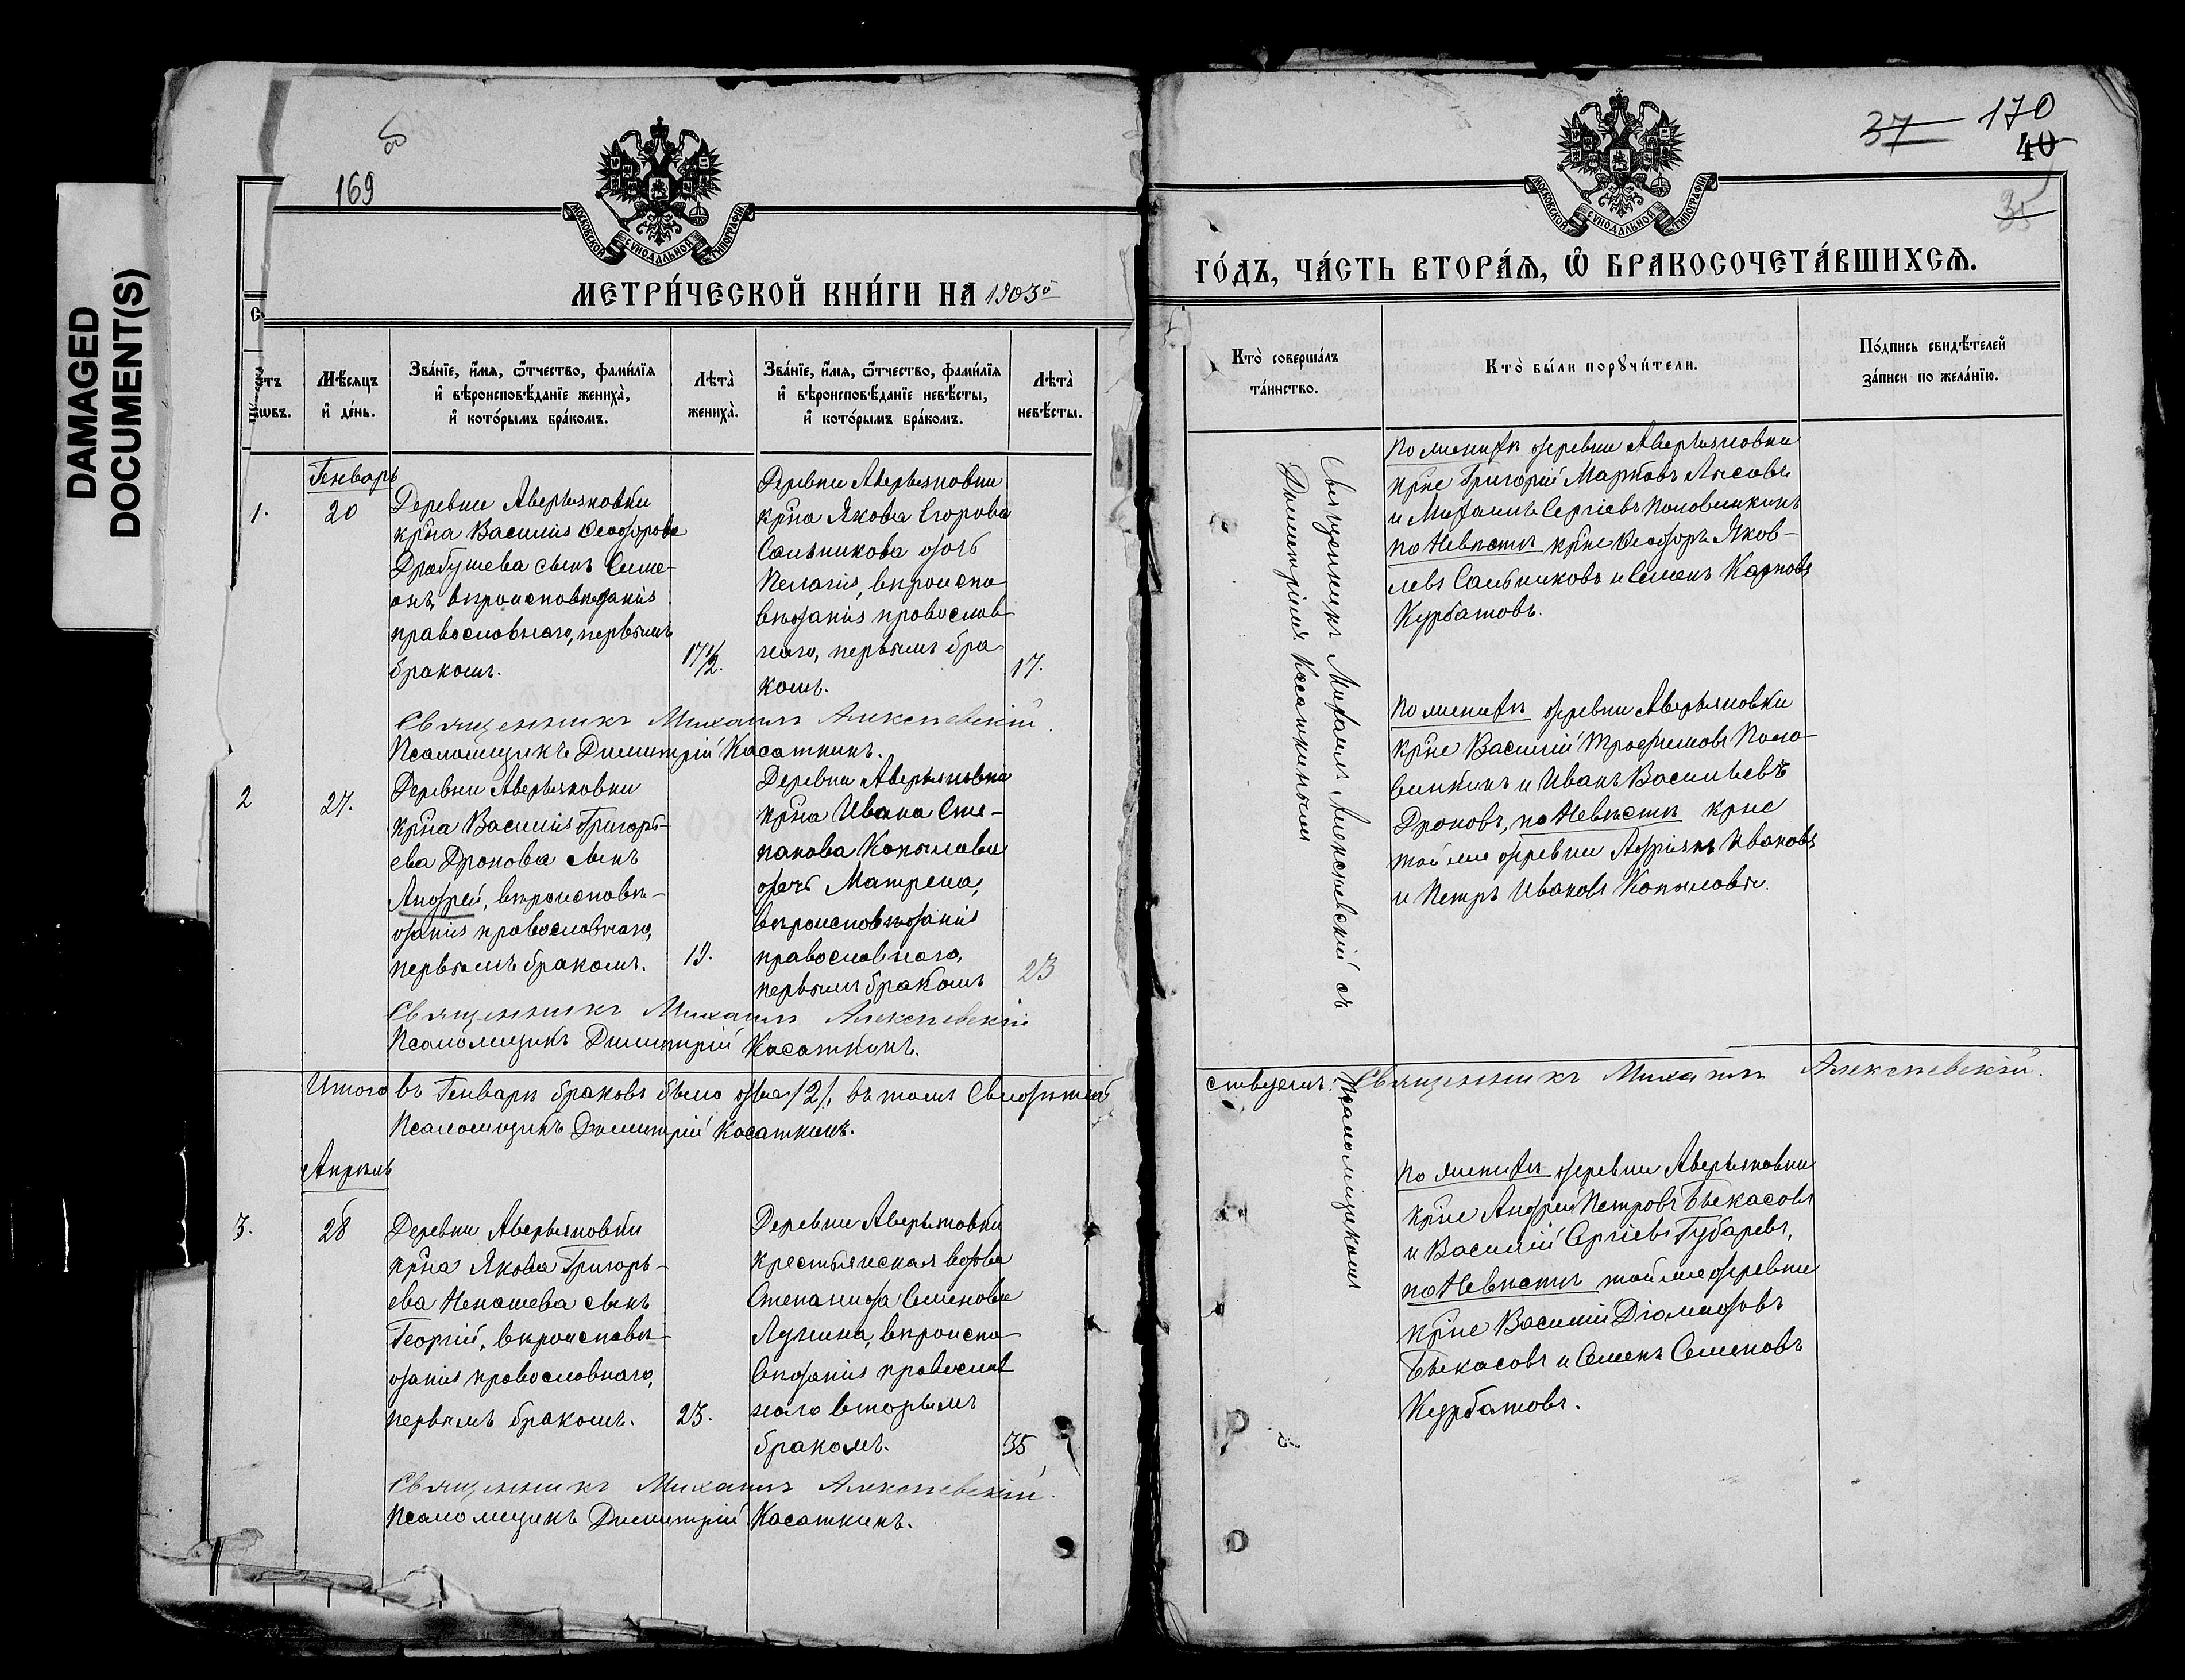 DAMAGED
DOCUMENT(S)
169
МОСКОВСКОЙ СѴНОДАЛЬНОЙ ТИПОГРАФІИ
МЕТРИ́ЧЕСКОЙ КНИ́ГИ НА 1903й
Мѣсяцъ
и҆ де́нь.
Зва́нїе, и҆́мя, ѻ҆́тчество, фами́лїя
и҆ вѣроисповѣ́данїе жениха̀,
и҆ кото́рымъ бра́комъ.
Лѣта̀
жениха̀.
Зва́нїе, и҆́мя, ѻ҆́тчество, фами́лїя
и҆ вѣроисповѣ́данїе невѣ́сты,
и҆ кото́рымъ бра́комъ.
Лѣта̀
невѣ́сты.
Генварь
1.
20
Деревни Аверьяновки
кр̃на Василія Ѳеодорова
Дробушева сынъ Симе-
онъ, вѣроисповѣданія
православнаго, первымъ
бракомъ.
17½.
Деревни Аверьяновки
кр̃на Якова Егорова
Сальникова дочь
Пелагія, вѣроиспо
вѣданія православ
наго, первымъ бра-
комъ.
17.
Священникъ Михаилъ Алексѣевскій.
Псаломщикъ Димитрій Касаткинъ.
2
27.
Деревни Аверьяновки
кр̃на Василія Григорь-
ева Дронова сынъ
Андрей, вѣроисповѣ-
данія православнаго,
первымъ бракомъ.
19.
Деревни Аверьяновки
кр̃на Ивана Сте-
панова Копылова
дочь Матрена,
вѣроисповѣданія
православнаго,
первымъ бракомъ
23
Священникъ Михаилъ Алексѣевскій
Псаломщикъ Димитрій Касаткинъ.
Итого въ Генварѣ браковъ было два /2/, въ томъ Свидѣтель
Псаломщикъ Димитрій Касаткинъ.
Апрѣль
3.
28
Деревни Аверьяновки
кр̃на Якова Григорь-
ева Ненашева сынъ
Георгій, вѣроисповѣ-
данія православнаго,
первымъ бракомъ.
23.
Деревни Аверьяновки
крестьянская вдова
Степанида Семенова
Лунина, вѣроиспо
вѣданія православ
наго вторымъ
бракомъ.
35
Священникъ Михаилъ Алексѣевскій.
Псаломщикъ Димитрій Касаткинъ.
37 170
40
35
МОСКОВСКОЙ СѴНОДАЛЬНОЙ ТИПОГРАФІИ
ГО́ДЪ, ЧА́СТЬ ВТОРА́Ѧ, Ѽ БРАКОСОЧЕТА́ВШИХСѦ.
Кто̀ соверша́лъ
та́инство.
Кто̀ бы́ли порꙋчи́тели.
По́дпись свидѣ́телей
за́писи по жела́нїю.
Священникъ Михаилъ Алексѣевскій съ
Псаломщикомъ
Димитріемъ Касаткинымъ
По женихѣ деревни Аверьяновки
кр̃не Григорій Марковъ Лысовъ
и Михаилъ Сергіевъ Половинкинъ
по Невѣстѣ кр̃не Ѳеодоръ Яков-
левъ Сальниковъ и Семенъ Карповъ
Курбатовъ.
По женихѣ деревни Аверьяновки
кр̃не Василій Трофимовъ Поло-
винкинъ и Иванъ Васильевъ
Дроновъ, по Невѣстѣ крне
той же деревни Адріанъ Ивановъ
и Петръ Ивановъ Копыловы.
ствуемъ: Священникъ Михаилъ Алексѣевскій.
По женихѣ деревни Аверьяновки
кр̃не Андрей Петровъ Бекасовъ
и Василій Сергіевъ Губаревъ,
по Невѣстѣ той же деревни
кр̃не Василій Діомидовъ
Бекасовъ и Семенъ Семеновъ
Курбатовъ.